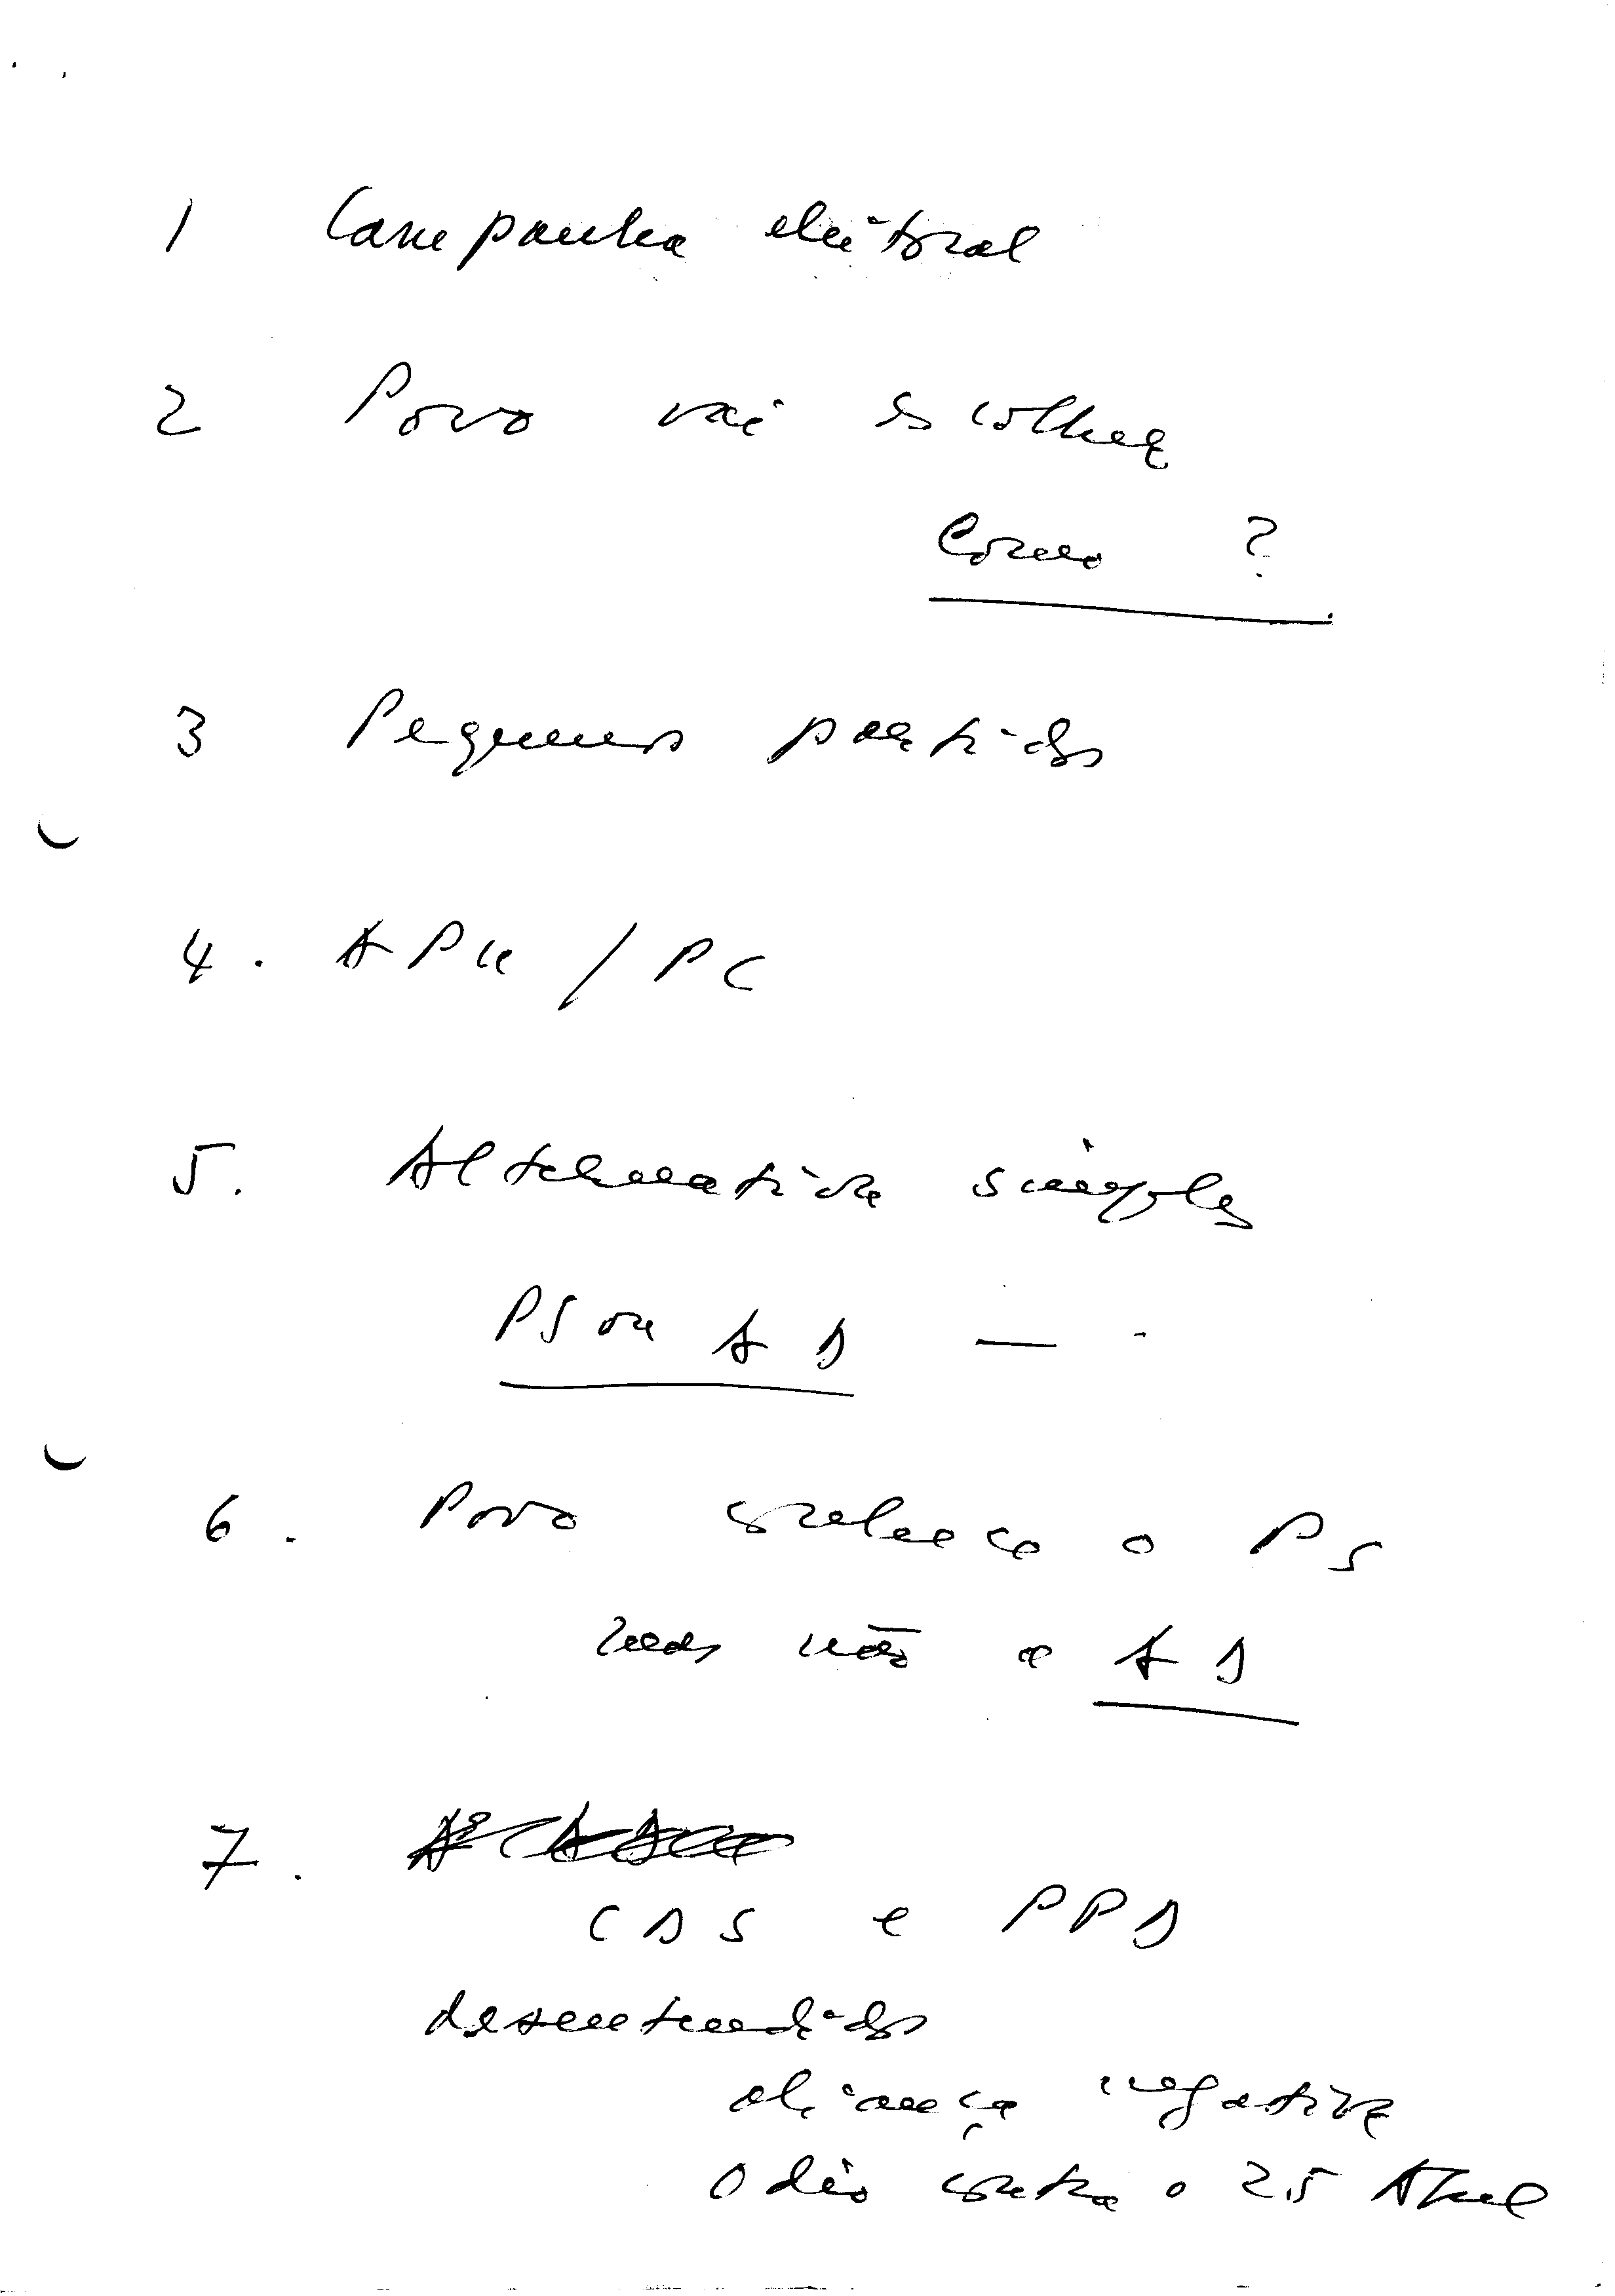 1 Campanha eleitoral
2 Povo vai escolher
Como ?
3 Pequenos partidos
4. APU / PC
5. Alternativa simples
PS ou AD — -
6. Povo conhece o PS
mas não a AD
7.
CDS e PPD
desentendidos
aliança negativa
Odio contra o 25 Abril